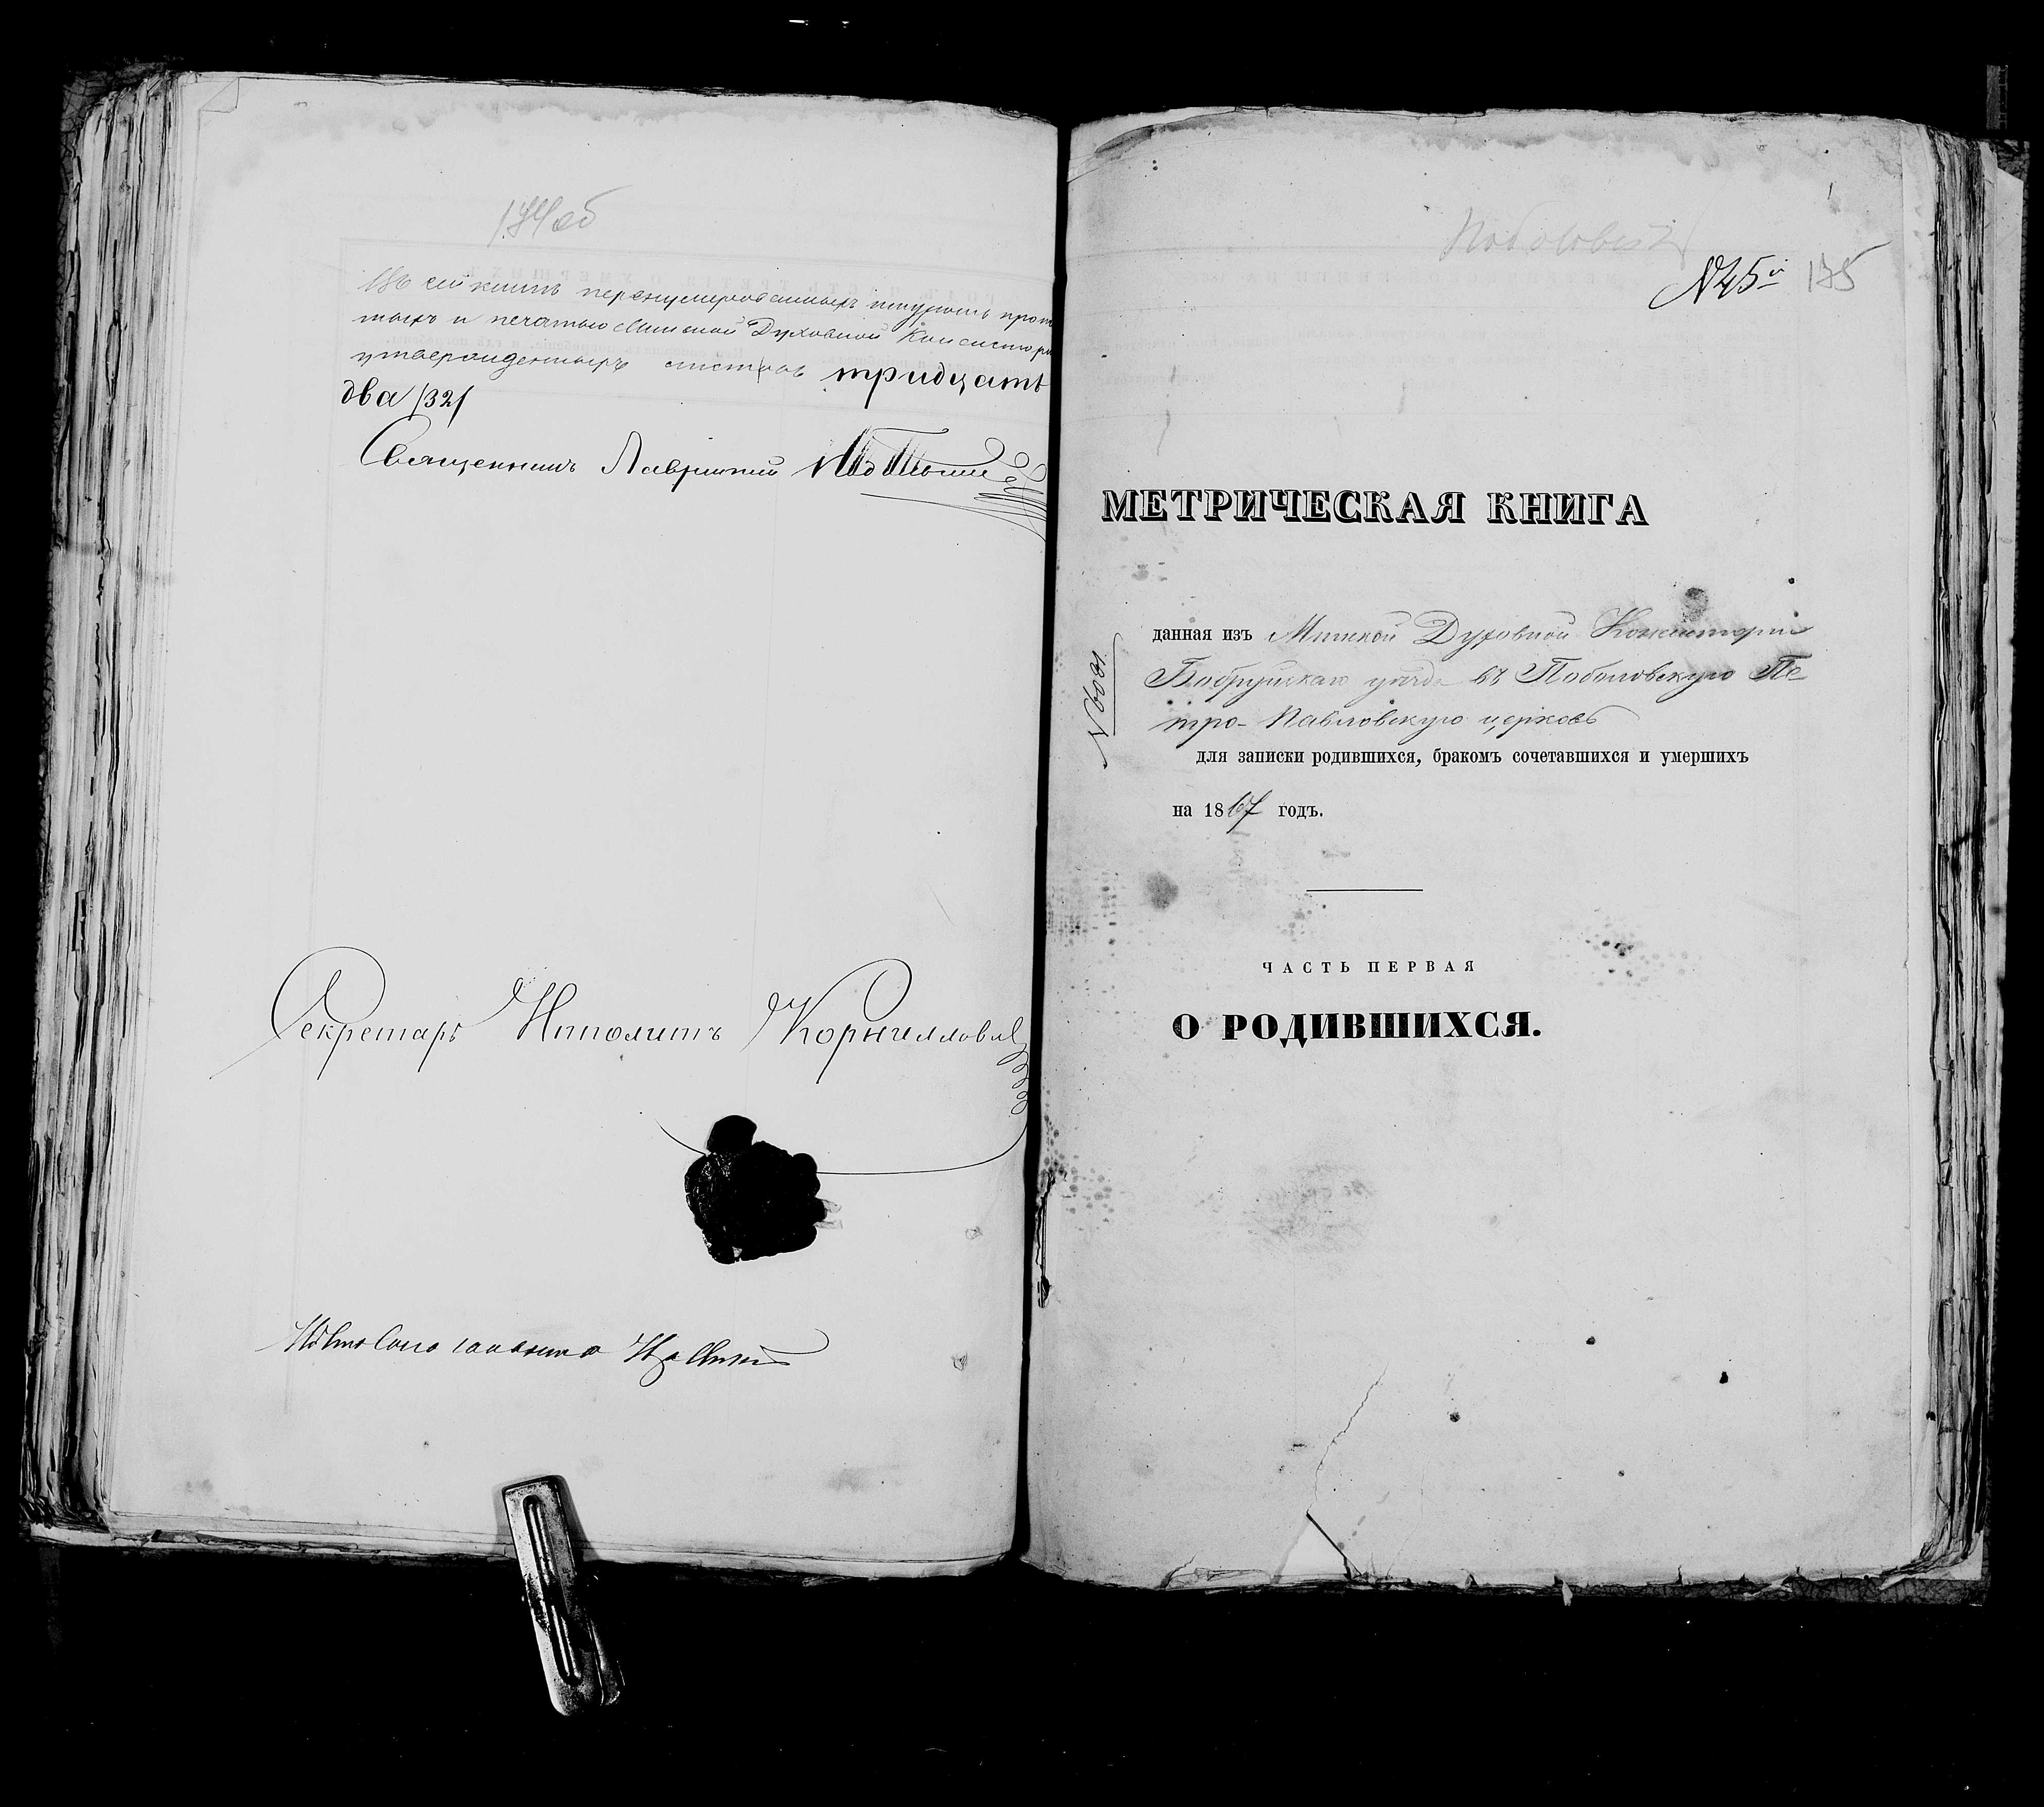 174об
Въ сей книгѣ перенумерованныхъ шнуромъ про
тыхъ и печатью Минской Духовной Консисторі
утвержденныхъ листовъ тридцать
два /32/
Священникъ Лаврентій
Секретарь Ипполитъ Корнилловъ
Поболовская
№45й 175
МЕТРИЧЕСКАЯ КНИГА
данная изъ Минской Духовной Консисторіи
Бобруйскаго уѣзда въ Поболовскую Пе
тро-Павловскую церковь
для записки родившихся, бракомъ сочетавшихся и умершихъ
на 1867 годъ.
ЧАСТЬ ПЕРВАЯ
О РОДИВШИХСЯ.